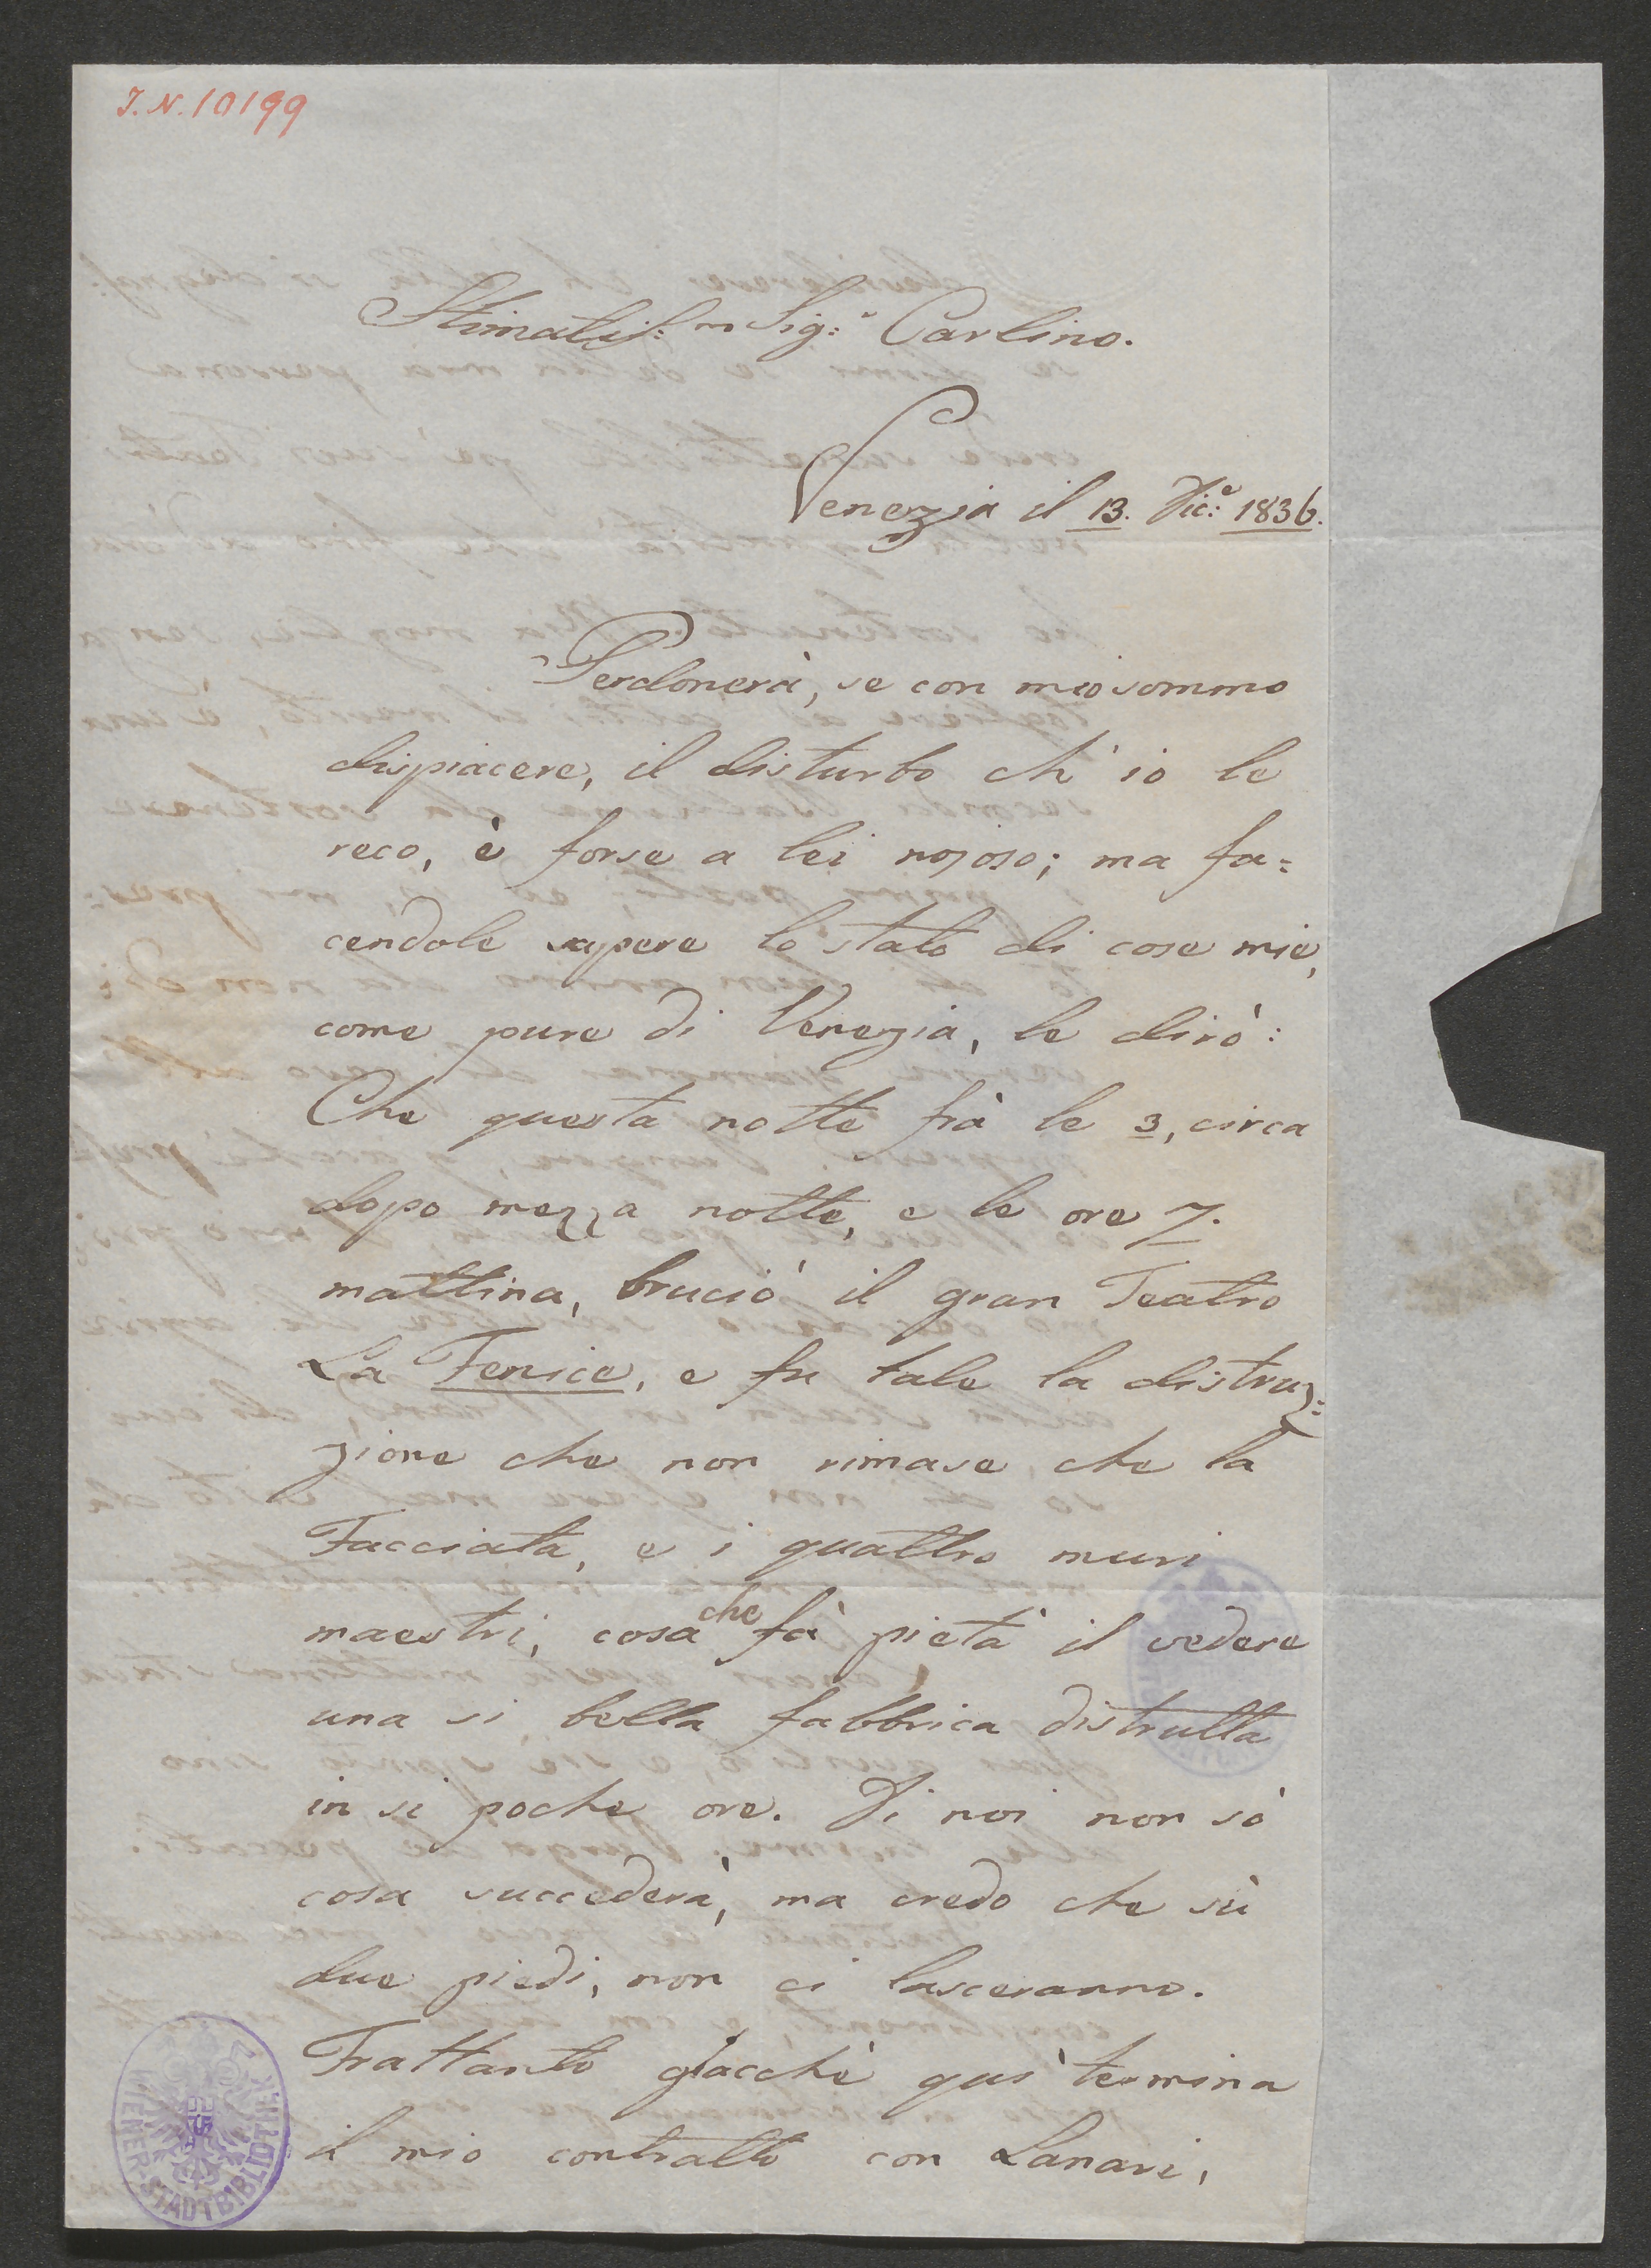 I.N. 10199
Stimatiss:mo Sig:r Carlino.
Venezia il 13. Dic:e 1836.
Perdonerà, se con mio sommo
dispiacere, il disturbo ch' io le
reco, è forse a lei nojoso; ma fa=
cendole sapere lo stato di cose mie,
come pure di Venezia, le dirò:
Che questa notte frà le 3, circa
dopo mezza notte, e le ore 7.
mattina, bruciò il gran Teatro
La Fenice, e fu tale la distruz=
zione che non rimase che la
Facciata, e i quattro muri
maestri, cosa che fà pietà il vedere
una si bella fabbrica distrutta
in si poche ore. Di noi non sò
cosa succederà, ma credo che sù
due piedi, non ci lasceranno.
Frattanto giacchè quì termina
il mio contratto con Lanari,
WIENER STADTBIBLIOTHEK